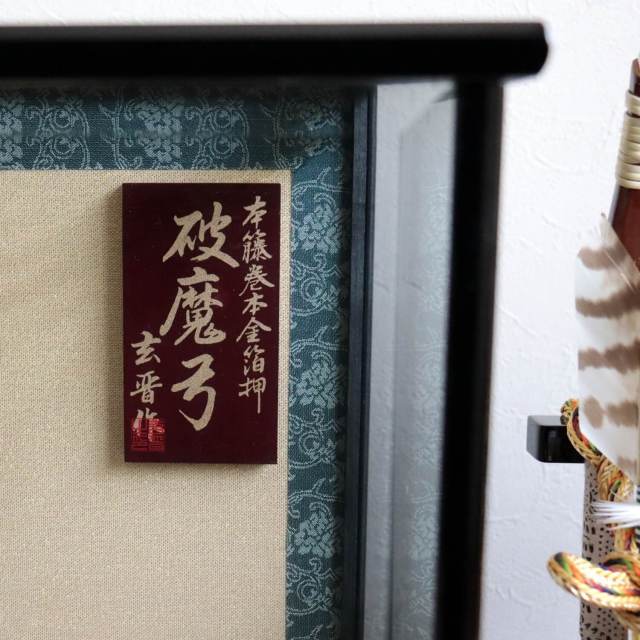 本籐巻本金箔押
破魔弓
玄晋作